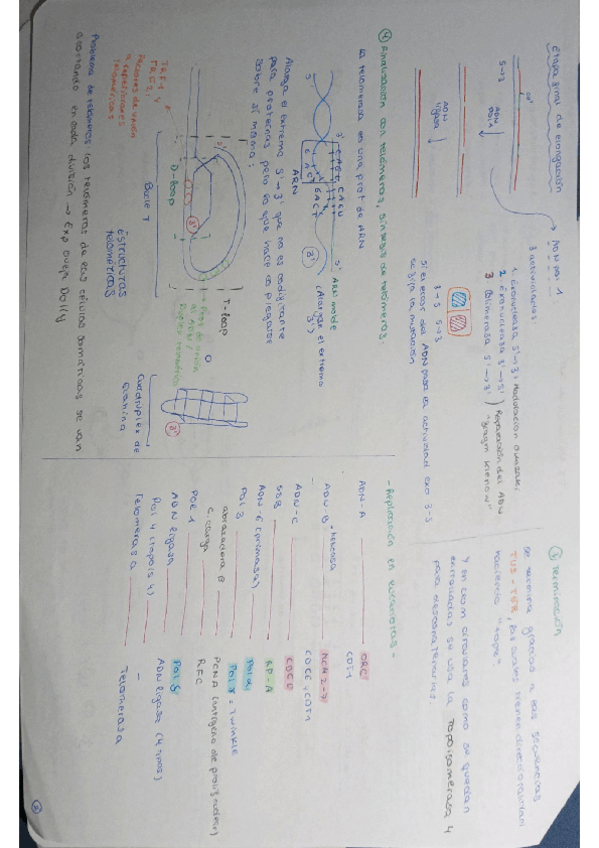 Etapa final de elongación
5'→3'
3'
ADN pol 1
ADN ligasa
ADN pol 1
3 actividades:
1. Exonucleasa 5'→3'
2 Exonucleasa 3'→5'
3 Polimerasa 5'→3'
Reparación del ADN
"Fragm Klenow"
3→5 5→3
si el error del ADN pasa la actividad exo 3-5
se fija la mutación
③ Terminación
se termina gracias a las secuencias
TUS-TER, las cuales tienen direccionalidad
haciendo "tope".
Y en crom circulares como se quedan
enrolladas se usa la topoisomerasa 4
para desconcatenarlos
④ Finalización con telómeros, síntesis de telómeros.
la telomerasa es una prot de ARN
ARN molde
(Alarga el extremo
3')
ARN
Alarga el extremo 5'→3' que no es codificante
para proteínas pero lo que hace es plegarse
sobre sí misma:
T-loop
D-loop
3'
TRF1 y
TRF2:
factores de unión
a repeticiones
teloméricas
Bucle T
Estructuras
teloméricas
O
Cuadruplex de
Guanina
3'
Problema de telómeros: los telómeros de las células somáticas se van
acortando en cada división → Exp oveja Dolly
- Replicación en eucariotas -
ADN-A ORC
CDT1
ADN-B → Helicasa MCM 2-7
ADN-C CDC6, CDT1
CDC6
SSB RP-A
ADN-G (primasa) Pol α
Pol 3 Pol γ + Twinkle
abrazadera β PCNA (antígeno de proliferación)
c. carga RFC
POL 1 Pol δ
ADN ligasa ADN ligasa (4 tipos)
Pol 4 (topois 4) —
Telomerasa Telomerasa